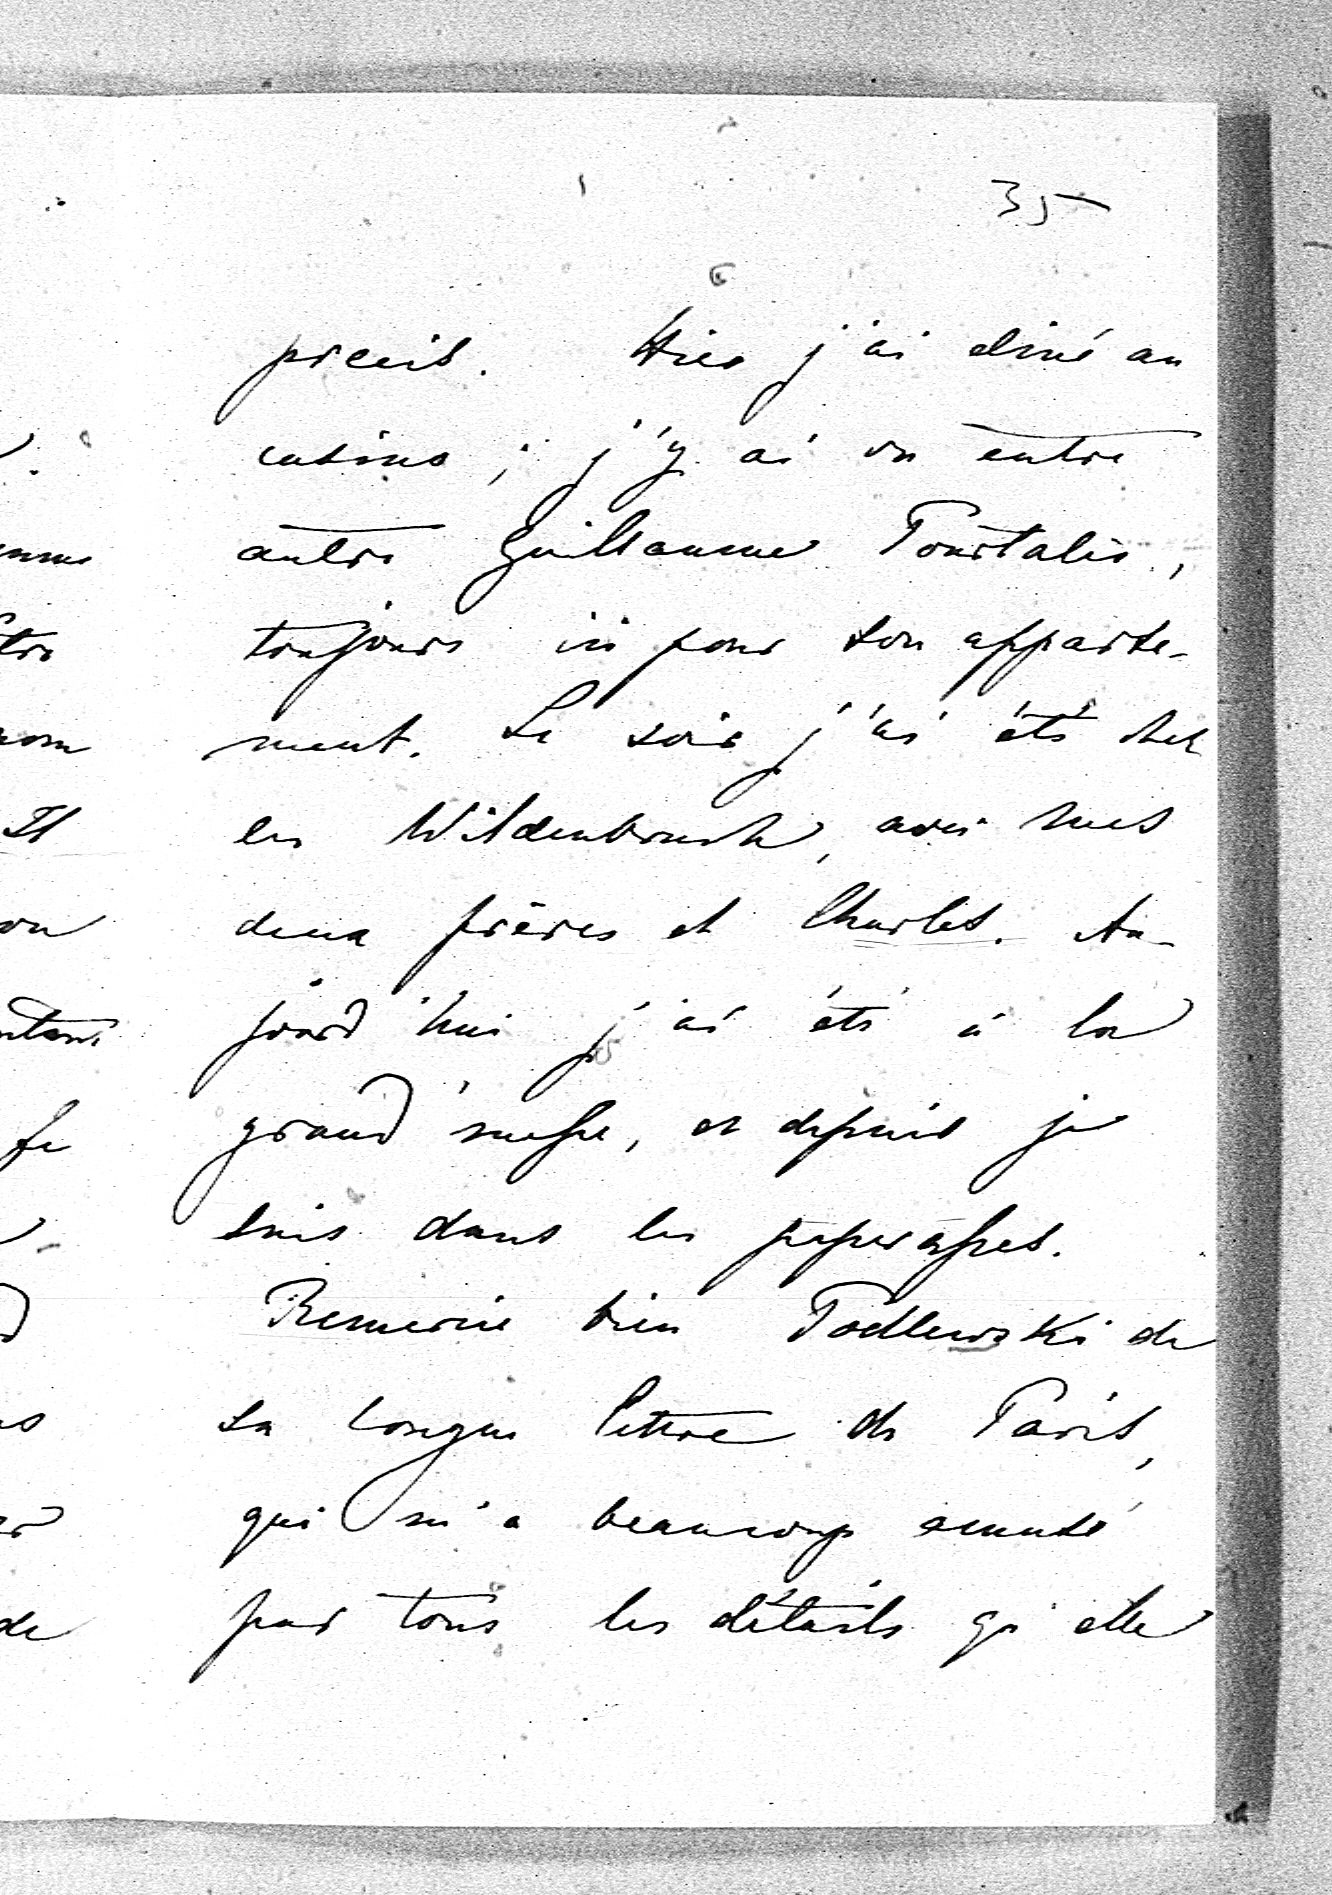 35
precis. Hier j'ai diné au
casino ; j'y ai vu entre
autre Guillaume Pourtalès,
toujours ici pour son apparte-
ment. Le soir j'ai été chez
les Wildenbruch, avec mes
deux frères et Charles. Au-
jourd'hui j'ai été à la
grand'messe, et depuis je
suis dans les paperasses.
Remercie bien Podlewski de
sa longue lettre de Paris,
qui m'a beaucoup amusé
par tous les détails qu'elle